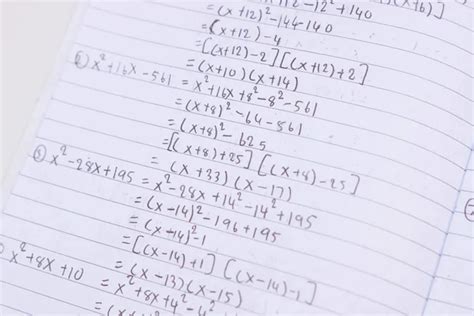 -12² + 140
= (x+12)² - 144 - 140
= (x+12) - 4
= [(x+12) - 2] [(x+12) + 2]
= (x+10) (x+14)
x² + 16x - 561 = x² + 16x + 8² - 8² - 561
= (x+8)² - 64 - 561
= (x+8)² - 625
= [(x+8) + 25] [(x+8) - 25]
= (x+33) (x-17)
x² - 28x + 195 = x² - 28x + 14² - 14² + 195
= (x-14)² - 196 + 195
= (x+14)² - 1
= [(x-14) + 1] [(x-14) - 1]
= (x-13) (x-15)
x² + 8x + 10 = x² + 8x + 4² - 4²